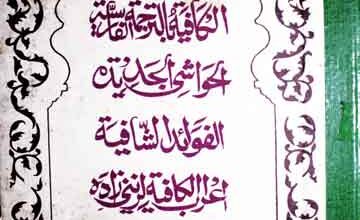 الكافية بالترجمة الفارسية
الحواشي الجديدة
الفوائد الشافية
اعراب الكافية لزيني زاده